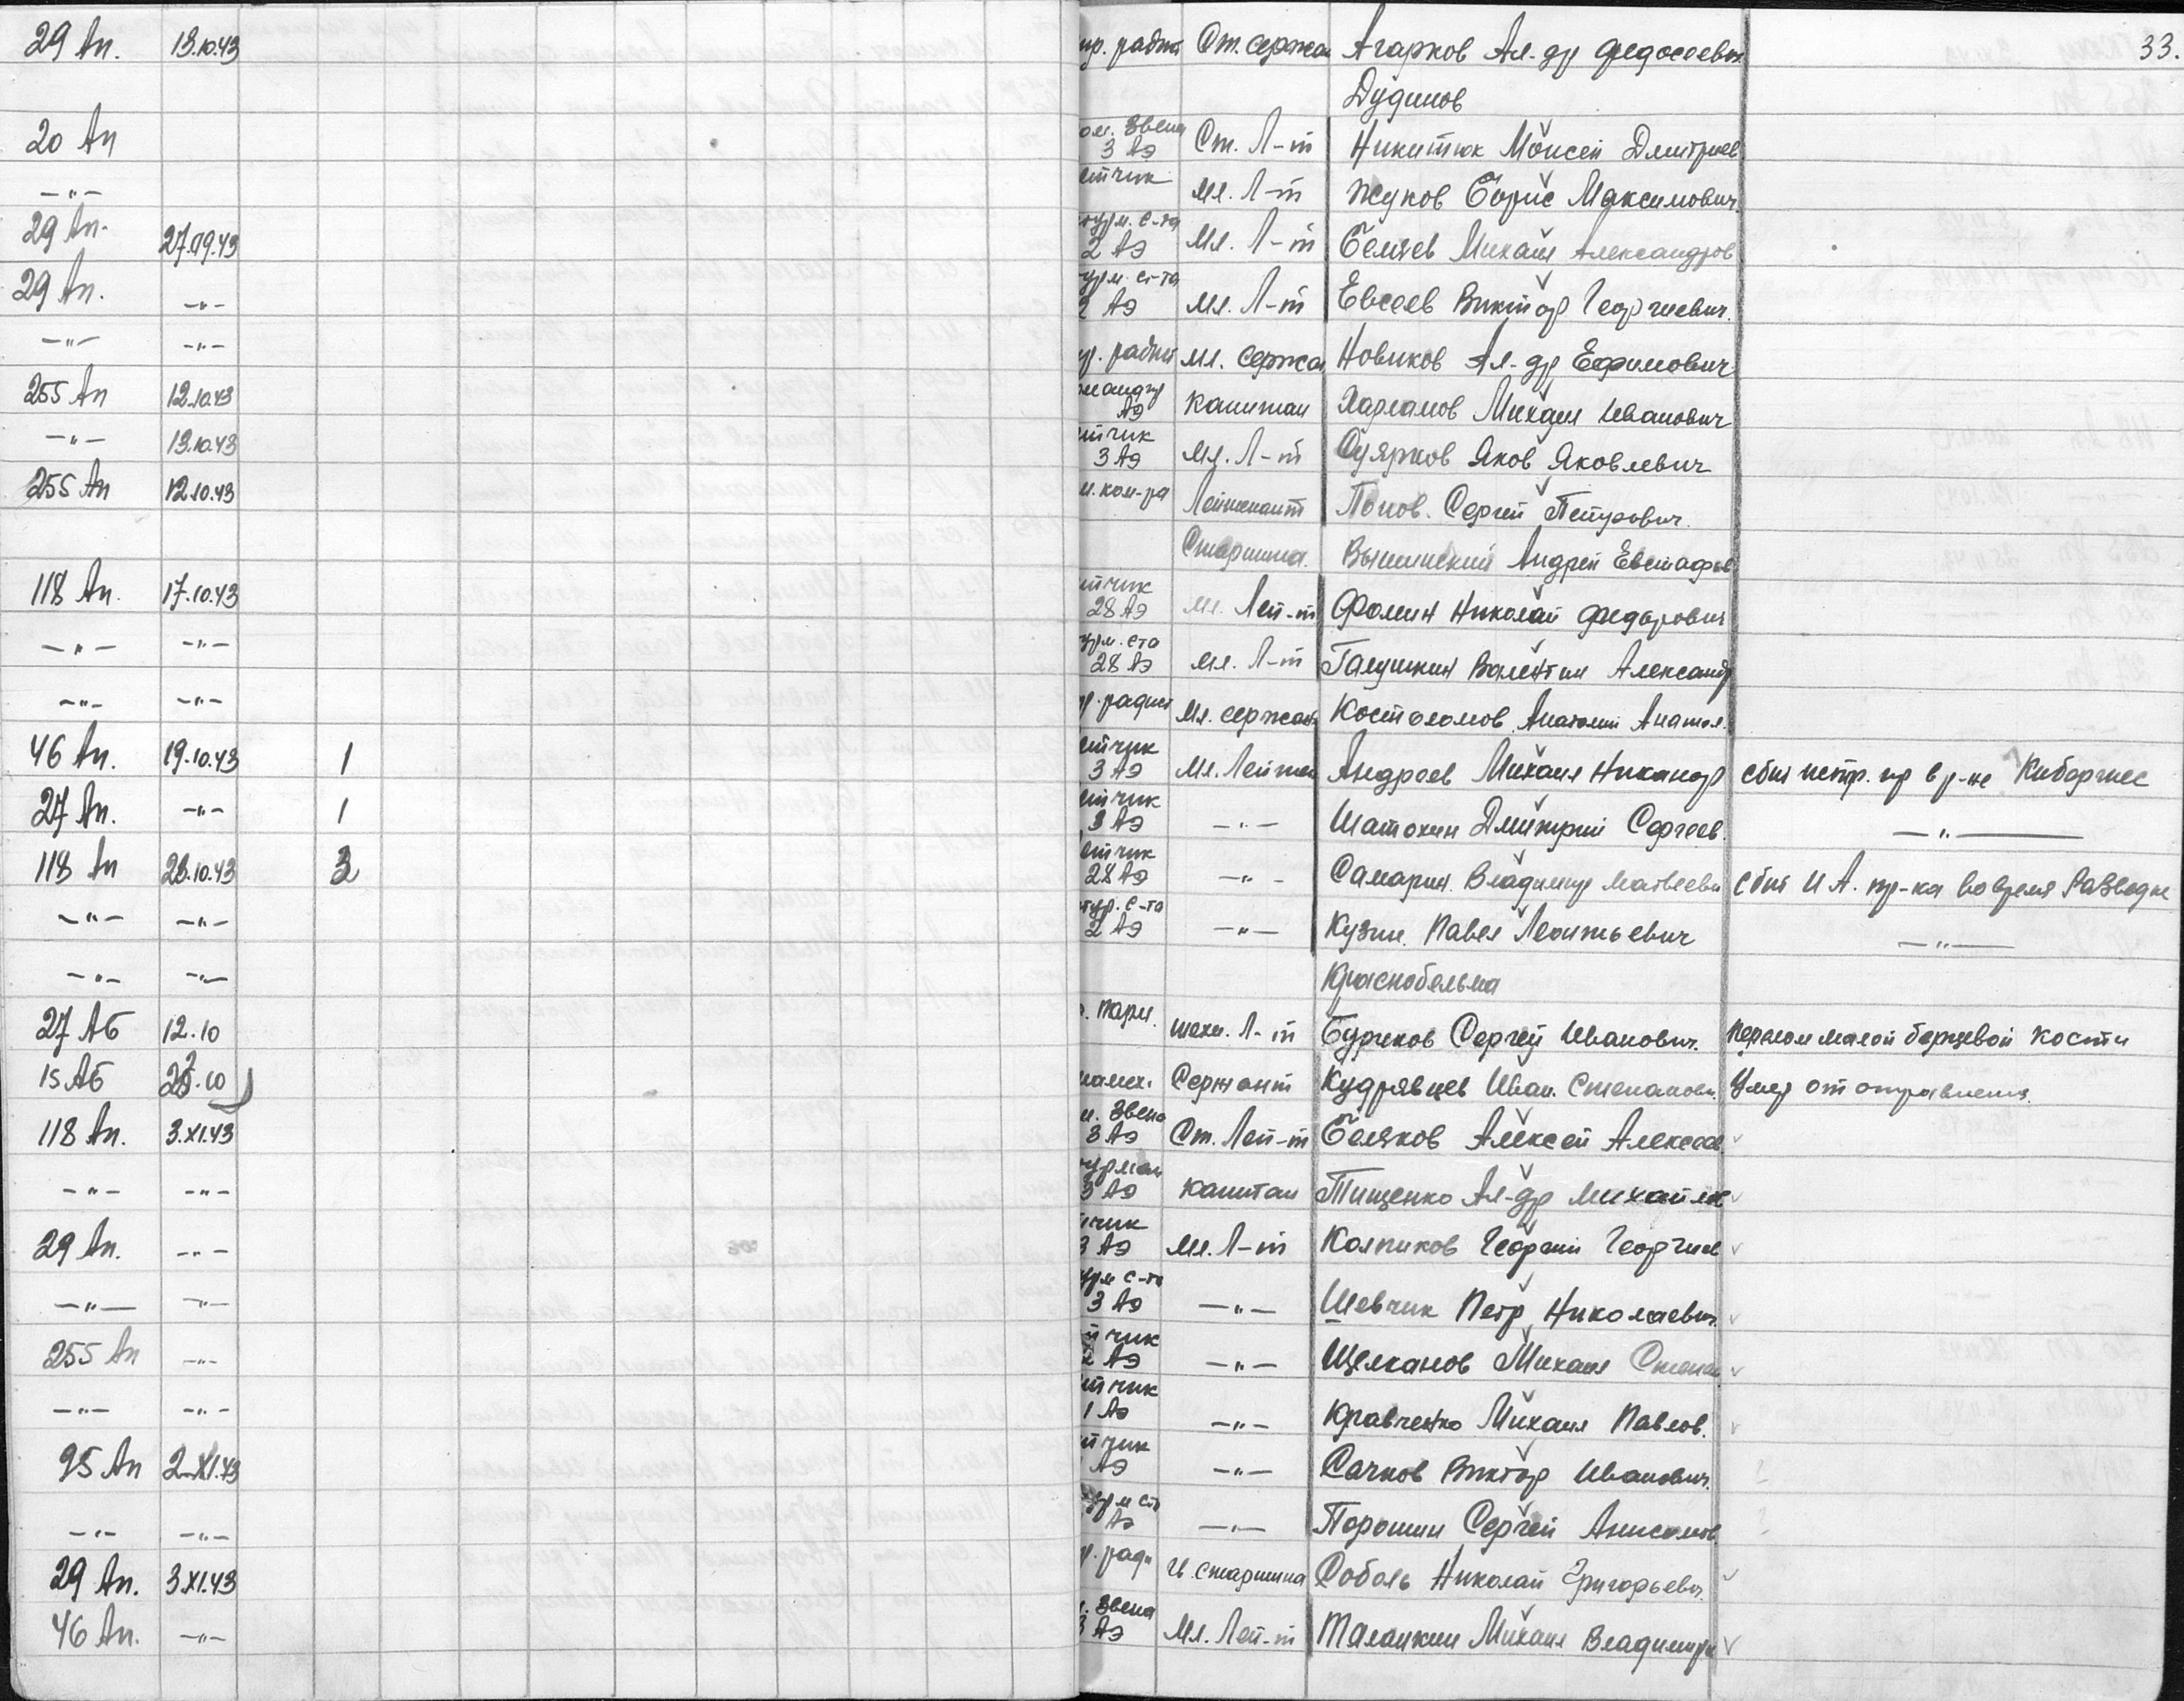 29 Ап. 13.10.43 ст. сержан Агарков Ал-др Федосеевич 33.
Дудинов
20 Ап ом. звена 3 АЭ Ст. Л-т Никитюк Моисей Дмитриев
—"— етчик Мл. Л-т Жуков Борис Максимович.
29 Ап. 27.09.43 2 АЭ Мл. Л-т Беляев Михаил Александров
29 Ап. —"— 2 АЭ Мл. Л-т Евсеев Виктор Георгиевич.
—"— —"— Мл. Сержан Новиков Ал-др Ефимович
255 Ап 12.10.43 АЭ Капитан Харламов Михаил Иванович
—"— 13.10.43 тчик 3 АЭ Мл. Л-т Суярков Яков Яковлевич
255 Ап 12.10.43 м. ком-ра Лейтенант Попов Сергей Петрович.
Старшина. Вышинский Андрей Евстафьев
118 Ап. 17.10.43 тчик 28 АЭ Мл. Лей-т Фомин Николай Федорович
—"— —"— урм. с-та 28 АЭ Мл. Л-т Галушкин Валентин Александр
—"— —"— Мл. сержант Костоломов Анатолий Анатол.
46 Ап. 19.10.43 1 етчик 3 АЭ Мл. Лейтен Андреев Михаил Никанор сбит истр. пр в р-не Кибергнес
27 Ап. —"— 1 етчик 3 АЭ —"— Шатохин Дмитрий Сергеев. —"—
118 Ап 23.10.43 3 етчик 28 АЭ —"— Самарин Владимир Матвееви сбит ИА. пр-ка во время Разведке
—"— —"— 2 АЭ —"— Кузин Павел Леонтьевич —"—
—"— —"— Краснобельма
27 АБ 12.10 техн. Л-т Бурчков Сергей Иванович. перелом малой берцевой кости
15 АБ Сержант Кудрявцев Иван Степанови. Умер от отравления.
118 Ап. 3.XI.43 м. звена 3 АЭ Ст. Лей-т Беляков Алексей Алексеев ✓
—"— —"— урман 3 АЭ Капитан Тищенко Ал-др Михайлов ✓
29 Ап. —"— тчик 3 АЭ Мл. Л-т Колпиков Георгий Георгиев ✓
—"— —"— урм с-та 3 АЭ —"— Шевчик Петр Николаевич. ✓
255 Ап —"— тчик 2 АЭ —"— Щелканов Михаил Степан ✓
—"— —"— тчик 1 АЭ —"— Кравченко Михаил Павлов. ✓
95 Ап 2.XI.43 тчик АЭ —"— Сачков Виктор Иванович.
—"— —"— АЭ —"— Порошин Сергей Анисимов
29 Ап. 3.XI.43 старшина Соболь Николай Григорьевич. ✓
46 Ап. —"— звена 3 АЭ Мл. Лей-т Талалкин Михаил Владимиро ✓